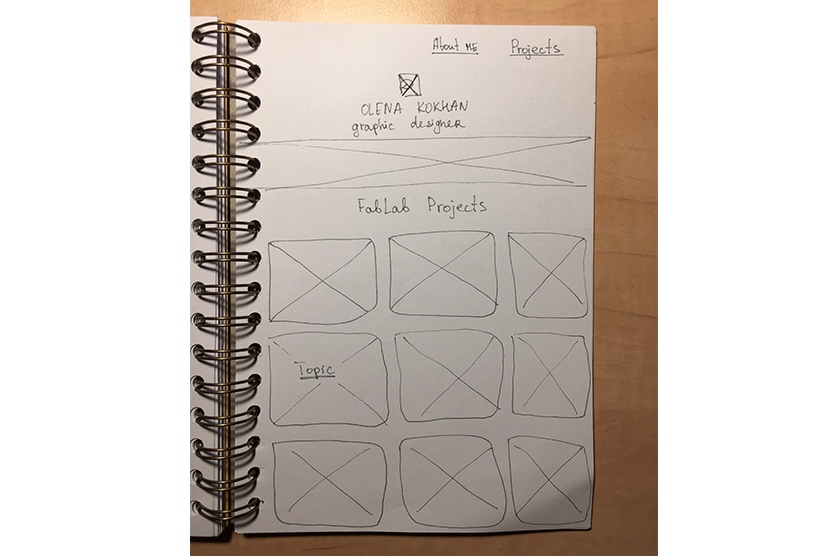 About ME Projects
OLENA KOKHAN
graphic designer
FabLab Projects
Topic